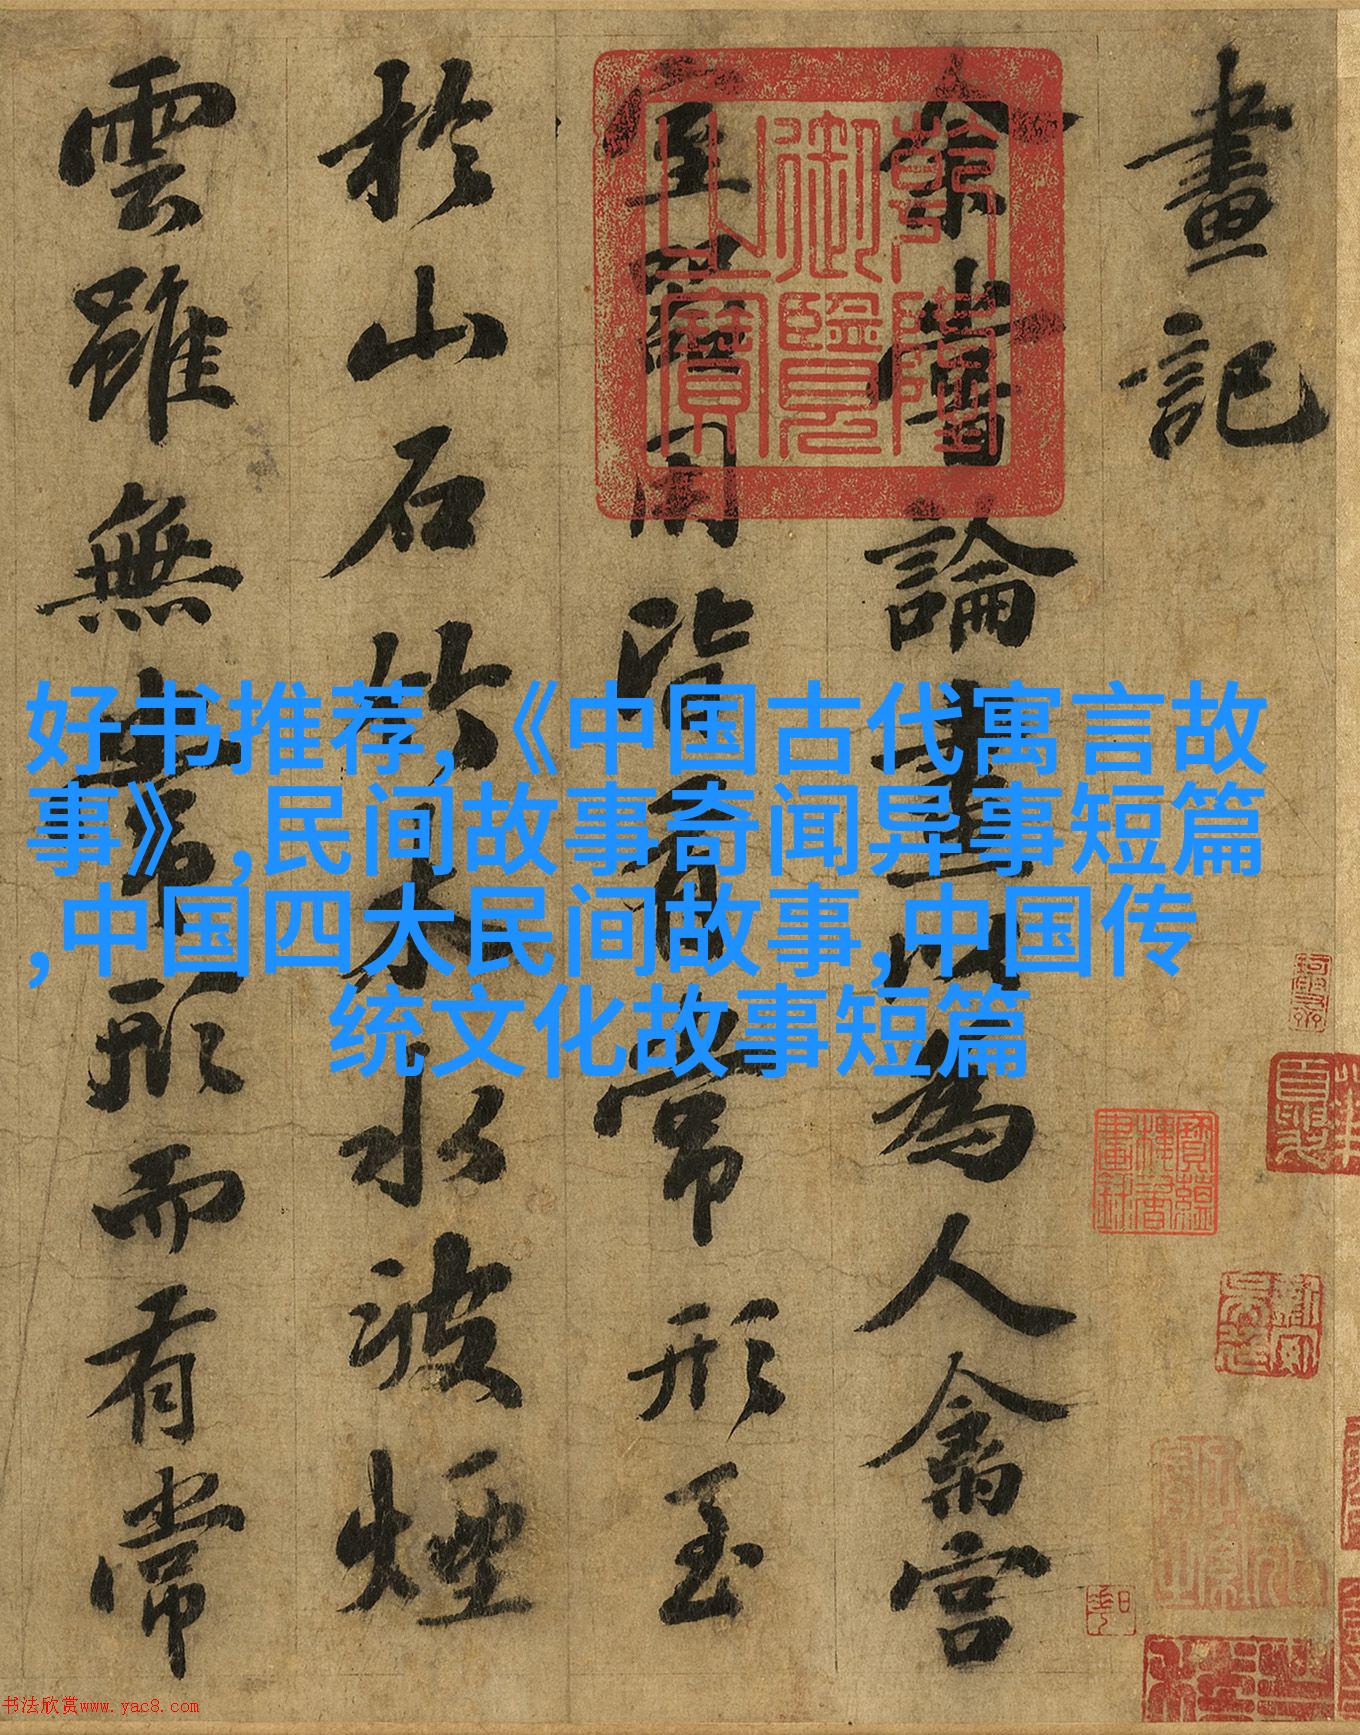 畫記
余嘗論畫以為人禽宮
室器用皆有常形至
於山石竹木水波煙
雲雖無常形而有常
乾隆
御覽
之寶
好书推荐,《中国古代寓言故
事》,民间故事奇闻异事短篇
,中国四大民间故事,中国传
统文化故事短篇
书法欣赏www.yac8.com